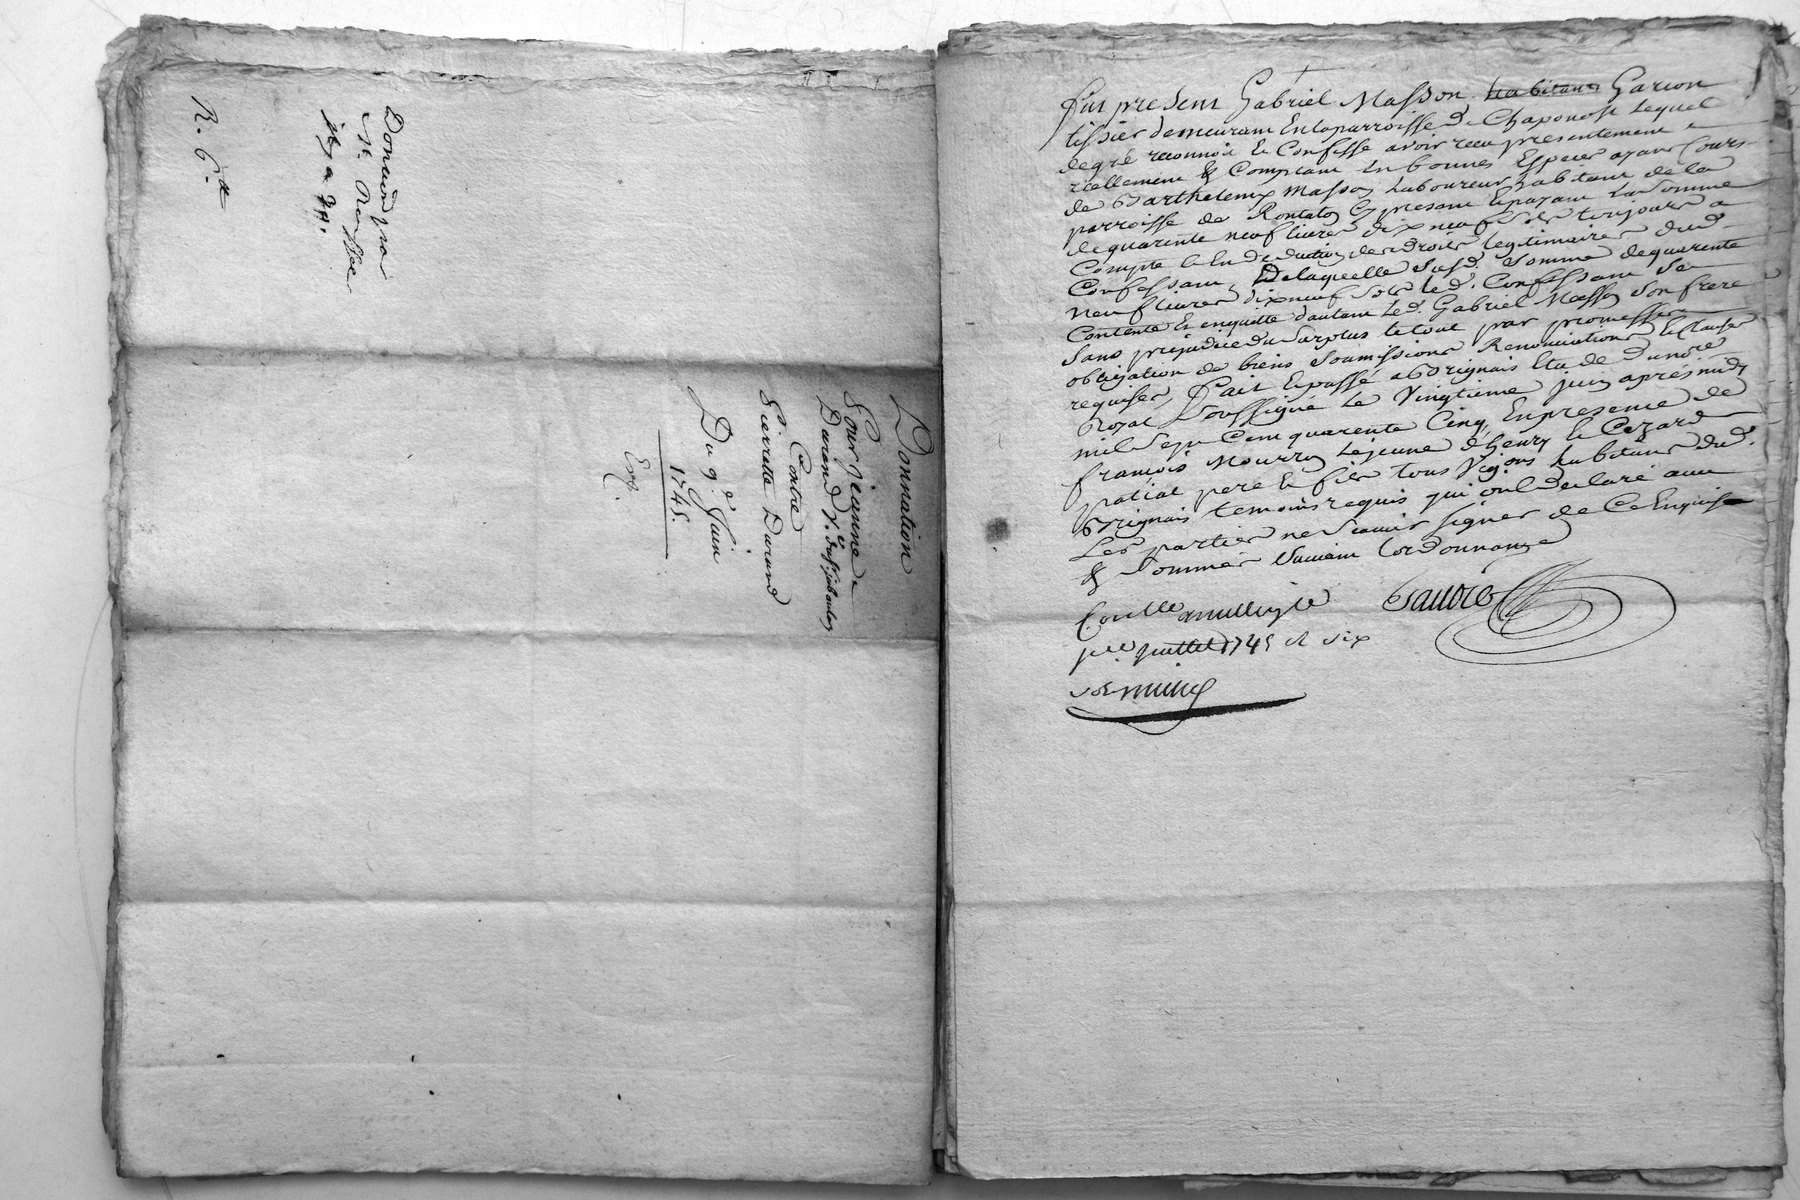 R. 6.tt
Donnation
Pour Jeanne
Durand
Contre
Pierrette Durand
Du 9.e Juin
1745.
Exp.
Fut present Gabriel Masson habitant Garcon
tissier demeurant En la parroisse de Chaponost Lequel
de gré reconnoit et Confesse avoir receu presentement
reellement & Comptant En bonnes Especes ayant Cours
de Barthelemy Masson Laboureur habitant de la
parroisse de Rontalon present Et payant La Somme
de quarente neuf livres dix neuf sols toujours a
Compte et En deduction des droits legitimaires dud.
Confessant, De laquelle susd. Somme de quarente
neuf livres dix neuf sols led. Confessant Se
Contente Et en quitte d'autant Led. Gabriel Masson Son frere
Sans prejudice du Surplus le tout par promesses
obligation de biens Soumissions Renonciations Et Clauses
requises, Fait Et passé a Brignais Etude du no.re
Royal Soussigné Le Vingtieme juin après midy
mil Sept Cent quarente Cinq, En presence de
francois Mourron Le jeune d'henry et Cezard
patial pere et fils tous Vig.ons habitans dud.
Brignais temoins requis qui ont declaré avec
Les parties ne Scavoir signer de Ce Enquis
& Sommés Suivant L'ordonnance
Con.lle a millery le
p.er juillet 1745 R six
sols